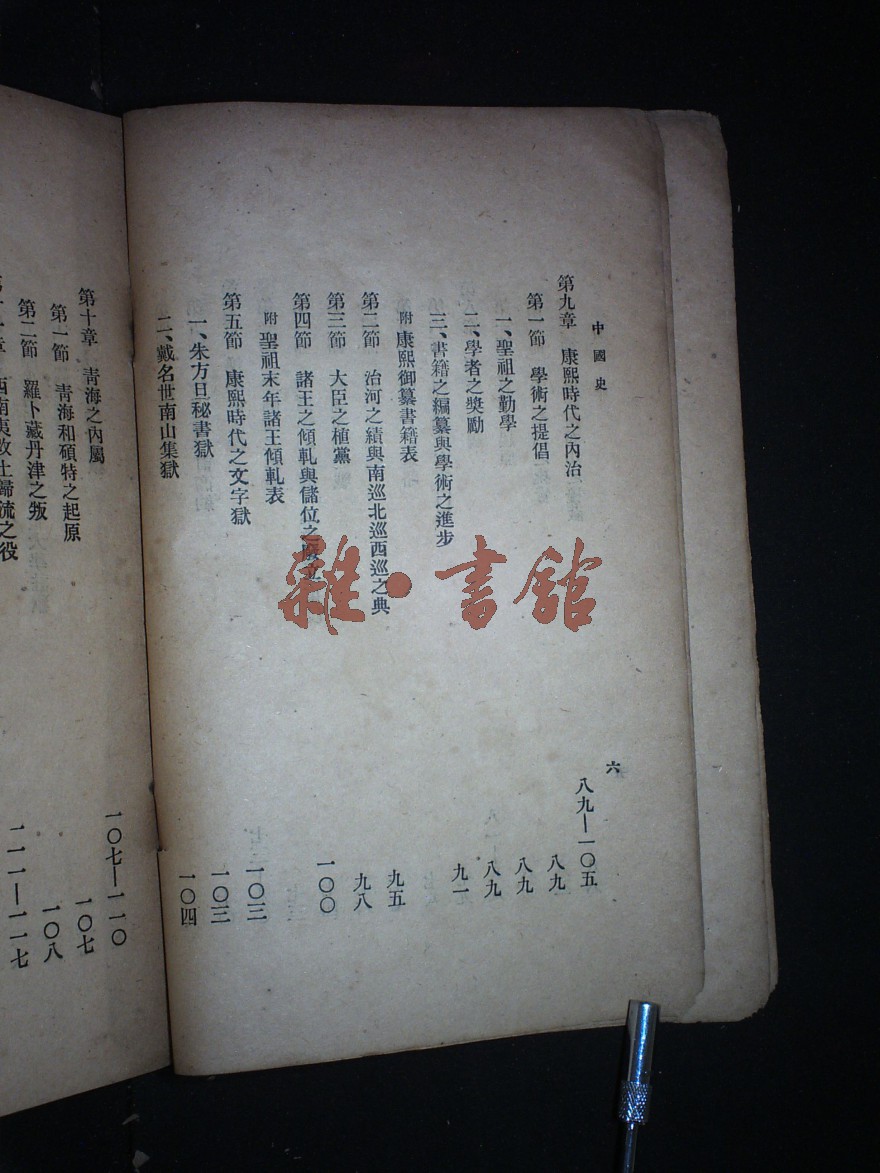 中國史 六
第九章 康熙時代之內治 八九—一〇五
第一節 學術之提倡 八九
一、聖祖之勤學 八九
二、學者之獎勵 八九
三、書籍之編纂與學術之進步 九一
附 康熙御纂書籍表
第二節 治河之績與南巡北巡西巡之典 九五
第三節 大臣之植黨 九八
第四節 諸王之傾軋與儲位之廢立 一〇〇
附 聖祖末年諸王傾軋表
第五節 康熙時代之文字獄 一〇三
一、朱方旦秘書獄 一〇三
二、戴名世南山集獄 一〇四
第十章 青海之內屬 一〇七—一一〇
第一節 青海和碩特之起原 一〇七
第二節 羅卜藏丹津之叛 一〇八
章 西南夷改土歸流之役 一一一—一一七
雜·書館